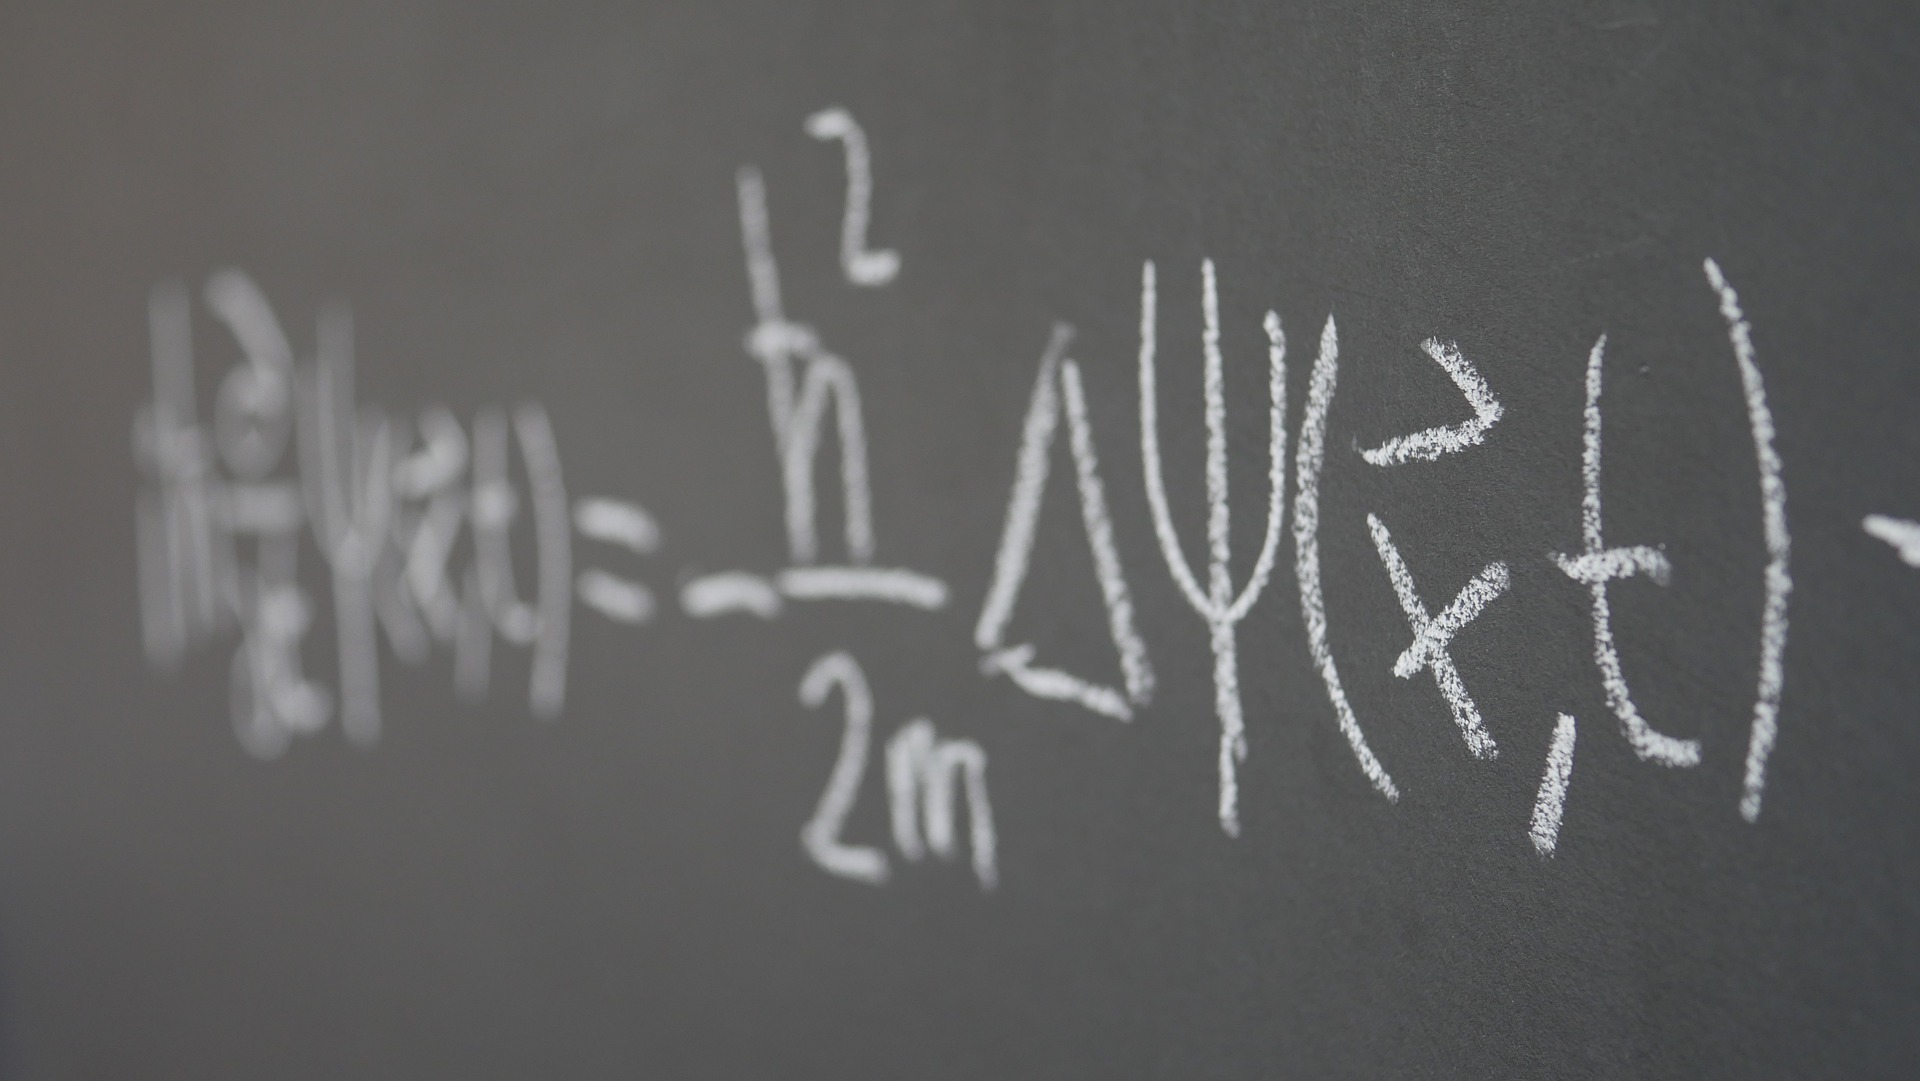 iħ ∂/∂t Ψ(x⃗,t) = -ħ²/2m ΔΨ(x⃗,t)